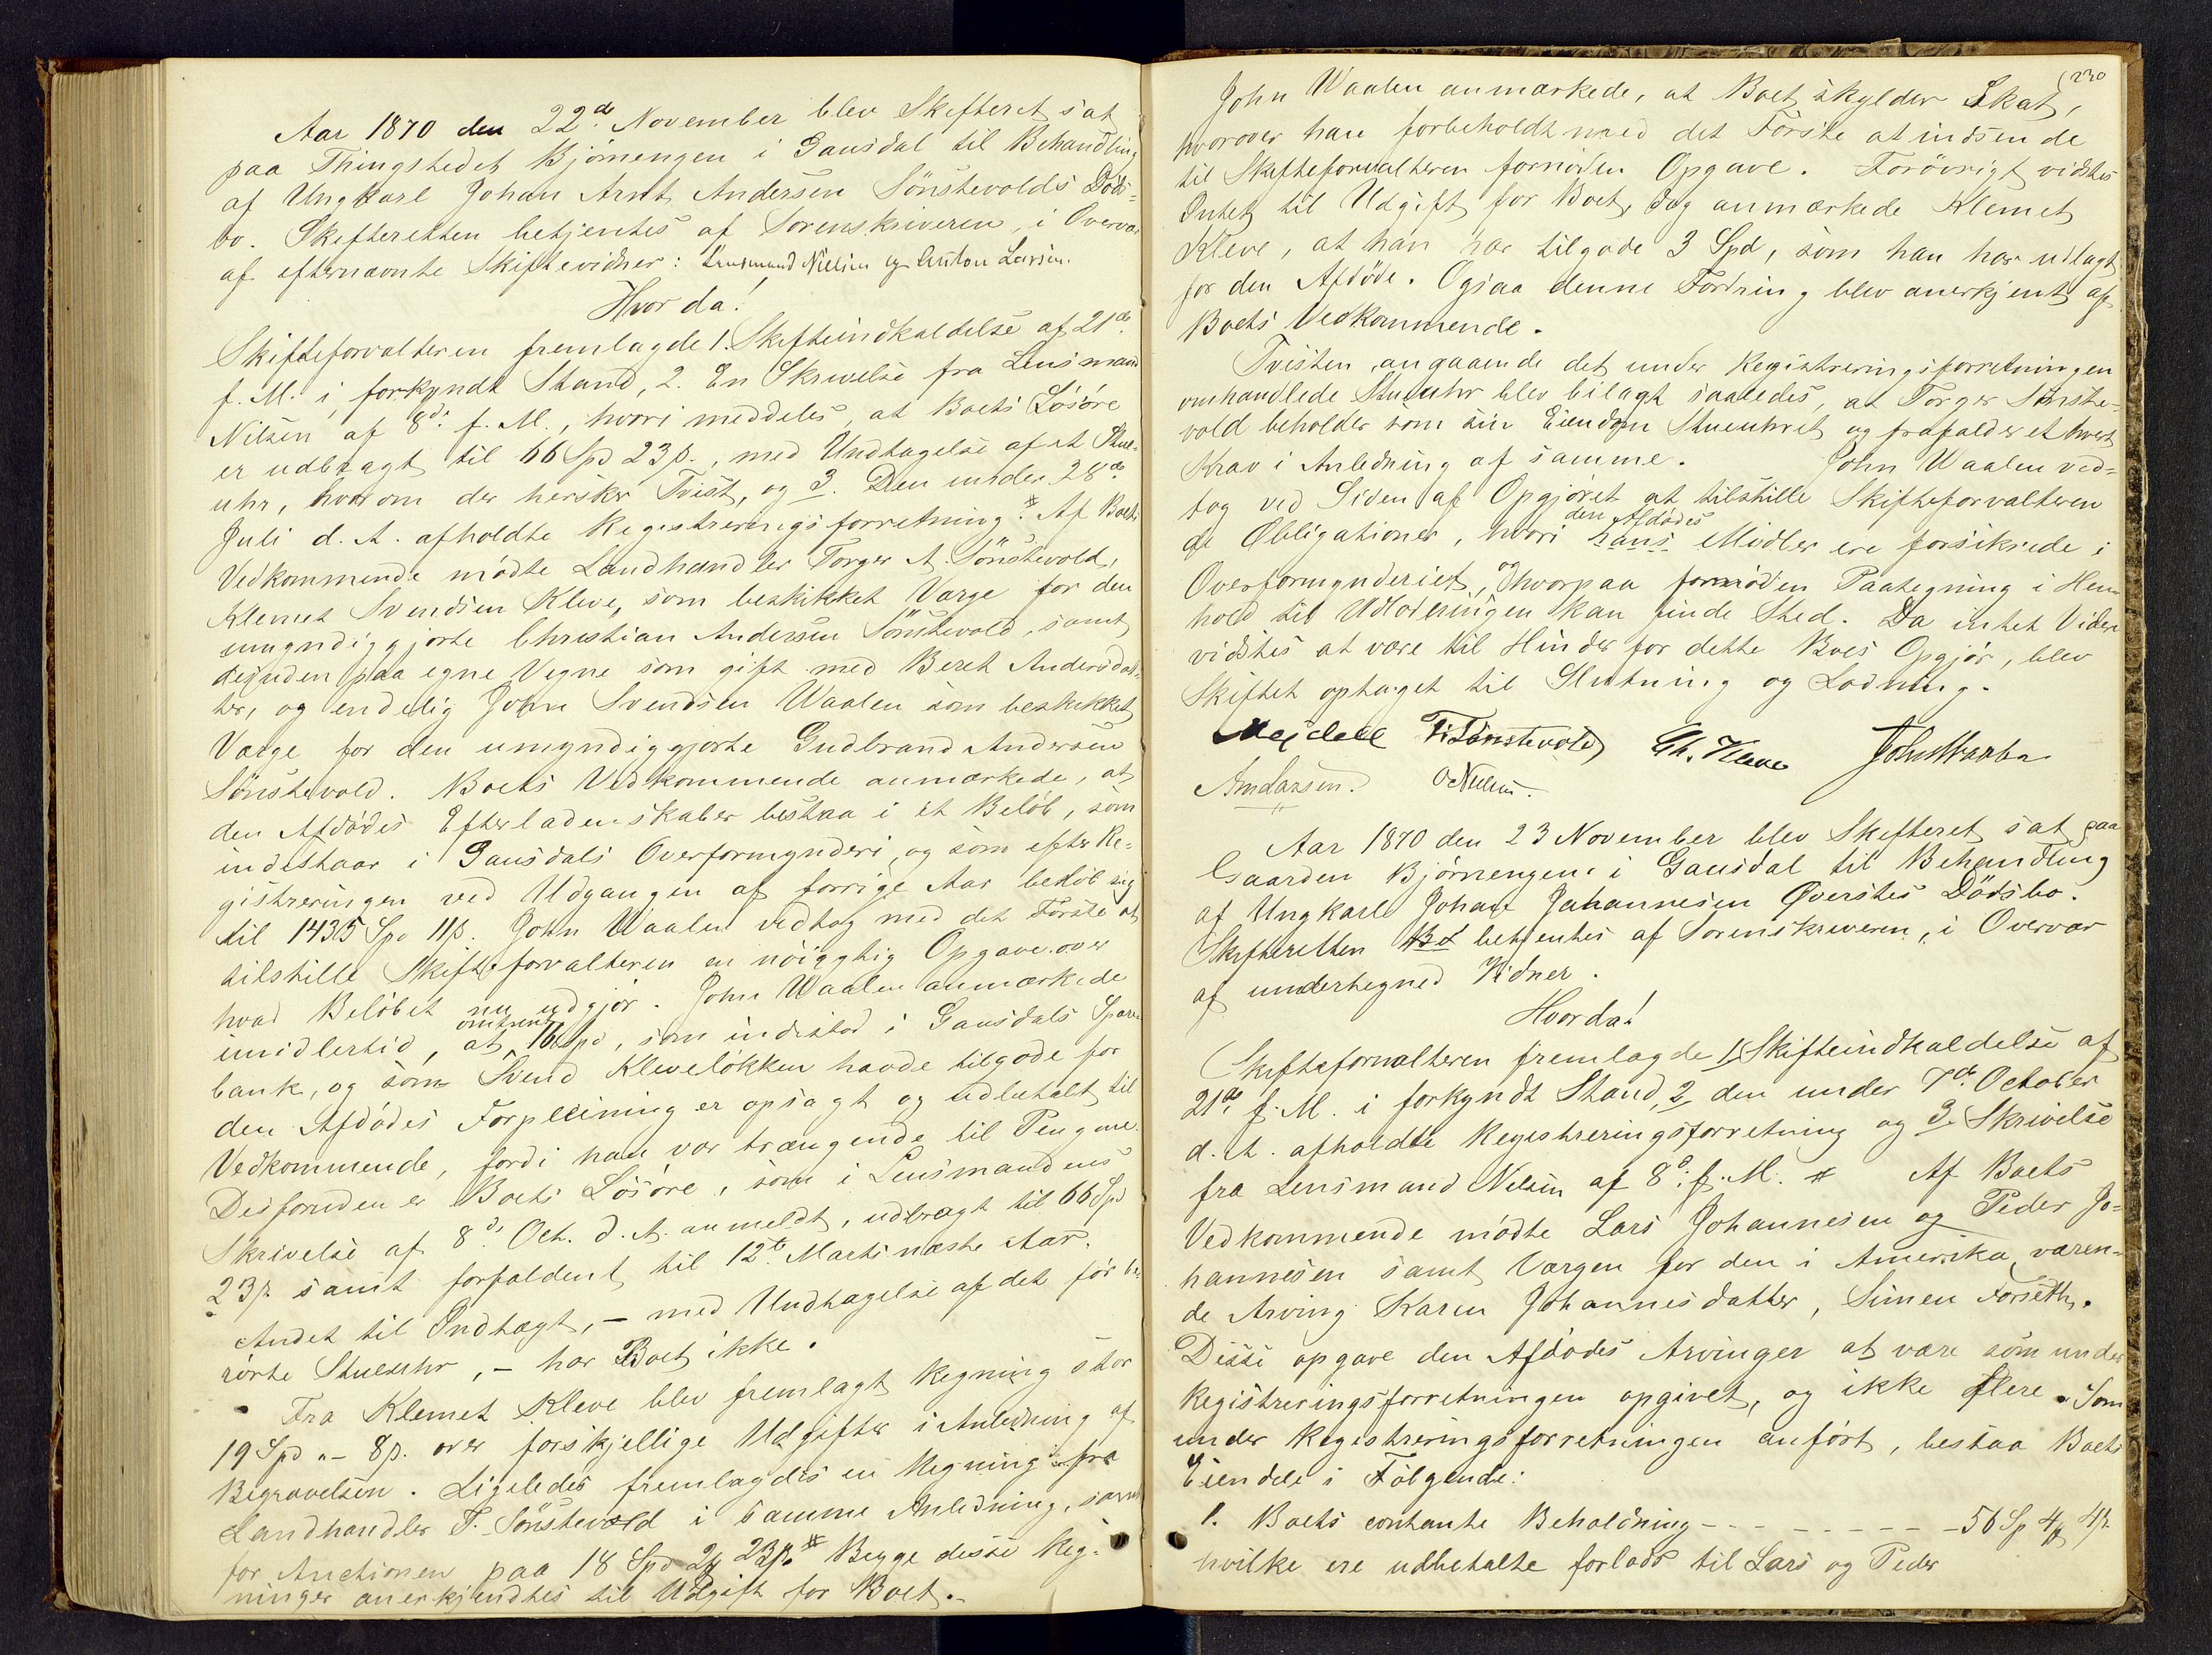 Aar 1870 den 22de November blev Skifteret sat
paa Thingstedet Bjørnengen i Gausdal til Behandling
af Ungkarl Johan Arnt Andersen Sönstevolds Döds=
bo. Skifteretten betjentes af Sorenskriveren, i Overvær
af efternævnte Skiftevidner: Lensmand Nielsen og Anton Larsen.
Hvor da!
Skifteforvalteren fremlagde 1. Skifteindkaldelse af 21de
f. M. i forkyndt Stand, 2. En Skrivelse fra Lensmand
Nilsen af 8d: f. M., hvori meddeles, at Boets Lösöre
er udbragt til 66 Spd 23 ß., med Undtagelse af et Stue-
uhr, hvorom der hersker Tvist, og 3. Den under 28de
Juli d. A. afholdte Registreringsforretning. # Af Boets
Vedkommende mödte Landhandler Torger A. Sönstevold,
Klemet Svendsen Kleve, som beskikket Værge for den
umyndiggjorte Christian Andersen Sönstevold, samt
desuden paa egne Vegne som gift med Beret Andersdat=
ter, og endelig John Svendsen Waalen som beskikket
Værge for den umyndiggjorte Gudbrand Andersen
Sönstevold. Boets Vedkommende anmærkede, at
den Afdödes Efterladenskaber bestaa i et Belöb, som
indestaar i Gausdals Overformynderi, og som efter Re=
gistreringen ved Udgangen af forrige Aar belöb sig
til 1435 Spd 11 ß. John Waalen vedtog med det Förste at
tilstille Skifteforvalteren en nöiagtig Opgave over
hvad Belöbet nu udgjör. John Waalen anmærkede
imidlertid, at omtrent 16 Spd, som indestod i Gausdals Spare-
bank, og som Svend Kleveløkken havde tilgode for
den Afdödes Forpleining er opsagt og udbetalt til
Vedkommende, fordi han var trængende til Pengene.
Desforuden er Boets Lösöre, som i Lensmandens
Skrivelse af 8d: Oct. d. A. anmeldt, udbragt til 66 Spd
23 ß samt forfaldent til 12te Marts næste Aar.
Andet til Indtægt, – med Undtagelse af det för be-
rörte Stueuhr, – har Boet ikke.
Fra Klemet Kleve blev fremlagt Regning stor
19 Spd „– 8 ß. over forskjellige Udgifter i Anledning af
Begravelsen. Ligeledes fremlagdes en Regning fra
Landhandler T. Sönstevold i samme Anledning, samt
for Auctionen paa 18 Spd 2 # 23 ß. # Begge disse Reg=
ninger anerkjendtes til Udgift for Boet.
230
John Waalen anmærkede, at Boet skylder Skat,
hvorover han forbeholdt med det Förste at indsende
til Skifteforvalteren fornöden Opgave. Forövrigt vidstes
Intet til Udgift for Boet, dog anmærkede Klemet
Kleve, at han har tilgode 3 Spd, som han har udlagt
for den Afdöde. Ogsaa denne Fordring blev anerkjent af
Boets Vedkommende.
Tvisten angaaende det under Registreringsforretningen
omhandlede Stueuhr blev bilagt saaledes, at Torger Sönste-
vold beholder som sin Eiendom Stueuhret og frafalder ethvert
Krav i Anledning af samme. John Waalen ved=
tog ved Siden af Opgjöret at tilstille Skifteforvalteren
de Obligationer, hvori hans den Afdödes Midler ere forsikrede i
Overformynderiet, og hvorpaa fornöden Paategning i Hen-
hold til Udlodningen kan finde Sted. Da intet Videre
vidstes at være til Hinder for dette Boes Opgjör, blev
Skiftet optaget til Slutning og Lodning.
Mejdell T. Sönstevold Kl. Kleve John Waalen
Am Larsen. O Nielsen.
Aar 1870 den 23 November blev Skifteret sat paa
Gaarden Bjørnengen i Gausdal til Behandling
af Ungkarl Johan Johannesen Øverstes Dödsbo.
Skifteretten Bet betjentes af Sorenskriveren, i Overvær
af undertegned Vidner.
Hvorda!
Skifteforvalteren fremlagde 1, Skifteindkaldelse af
21de f. M. i forkyndt Stand, 2, den under 7de October
d. A. afholdte Registreringsforretning og 3. Skrivelse
fra Lensmand Nilsen af 8d: f. M. # Af Boets
Vedkommende mödte Lars Johannesen og Peder Jo=
hannesen samt Værgen for den i Amerika væren=
de Arving Karen Johannesdatter, Simen Forseth.
Disse opgave den Afdödes Arvinger at være som under
Registreringsforretningen opgivet, og ikke flere. Som
under Registreringsforretningen anfört, bestaa Boets
Eiendele i Fölgende:
1. Boets contante Beholdning - - - - - - - - 56 Sp 4 # 4 ß
hvilke ere udbetalte forlods til Lars og Peder